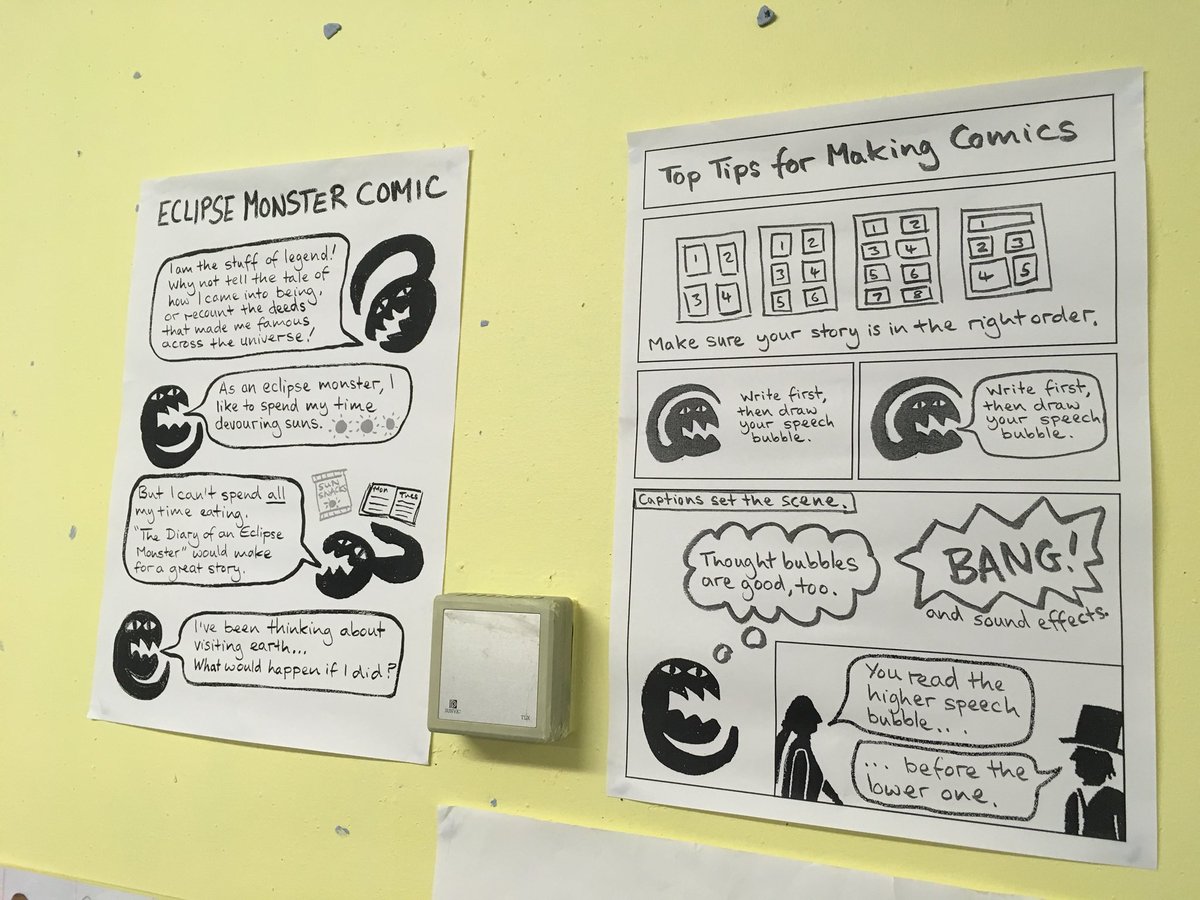 ECLIPSE MONSTER COMIC
I am the stuff of legend!
Why not tell the tale of
how I came into being,
or recount the deeds
that made me famous
across the universe!
As an eclipse monster, I
like to spend my time
devouring suns.
But I can't spend all
my time eating.
"The Diary of an Eclipse
Monster" would make
for a great story.
SUN
SNACKS
Mon
Tues
I've been thinking about
visiting earth...
What would happen if I did?
Top Tips for Making Comics
1 2
3 4
1 2
3 4
5 6
1 2
3 4
5 6
7 8
1
2 3
4 5
Make sure your story is in the right order.
Write first,
then draw
your speech
bubble.
Write first,
then draw
your speech
bubble.
Captions set the scene.
Thought bubbles
are good, too.
BANG!
and sound effects.
You read the
higher speech
bubble...
... before the
lower one.